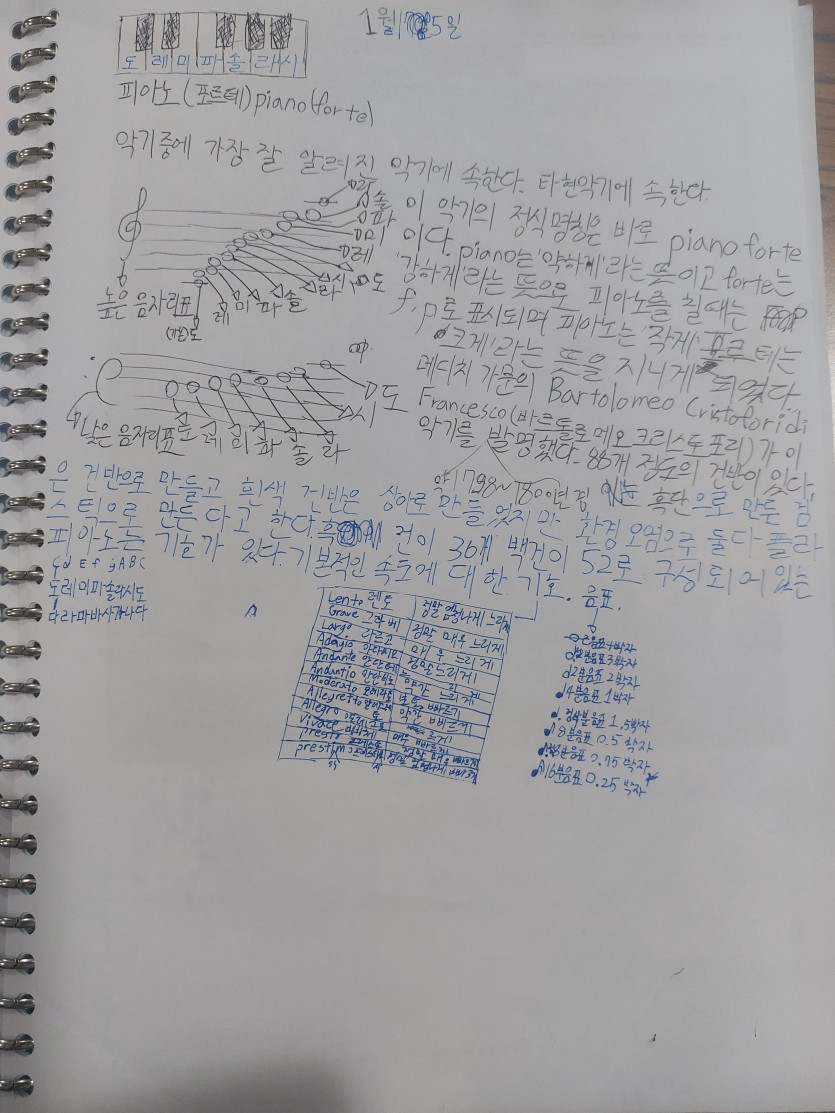 1월 5일
도 레 미 파 솔 라 시
피아노(포르테)piano(forte)
악기중에 가장 잘 알려진 악기에 속한다. 타현악기에 속한다.
라
솔
파
미
레
도
시
라
높은 음자리표
(가온)도
레 미 파 솔
이 악기의 정식명칭은 바로 piano forte
이다. piano는 '약하게'라는 뜻이고 forte는
'강하게'라는 뜻으로 피아노를 칠때는
f, p로 표시되며 피아노는 '작게' 포르테는
'크게'라는 뜻을 지니게 되었다.
메디치 가문의 Bartolomeo Cristofori di
Francesco(바르톨로메오 크리스토포리)가 이
악기를 발명했다. 88개 정도의 건반이 있다.
낮은 음자리표 도 레 미 파 솔 라
시 도
약 1798~1800년경
있는 흑단으로 만든 검
은 건반으로 만들고 흰색 건반은 상아로 만들었지만 환경 오염으로 둘다 플라
스틱으로 만든다고 한다. 흑건이 36개 백건이 52로 구성되어 있는
피아노는 기호가 있다. 기본적인 속도에 대한 기호. 음표.
C d E f g A B C
도레미파솔라시도
다라마바사가나다
Lento 렌토 정말 엄청나게 느리게
Grave 그라베 정말 매우 느리게
Largo 라르고 매우 느리게
Adagio 아다지오 정말 느리게
Andante 안단테 느리게
Andantio 약간 느리게
Moderato 모데라토 보통 빠르기
Allegretto 약간 빠르게
Allegro 알레그로 빠르게
Vivace 비바체 매우 빠르게
presto 프레스토 정말 매우 빠르게
prestimo 정말 엄청나게 빠르게
온음표 4박자
점2분음표 3박자
2분음표 2박자
4분음표 1박자
점4분음표 1.5박자
8분음표 0.5 박자
점8분음표 0.75 박자
16분음표 0.25 박자